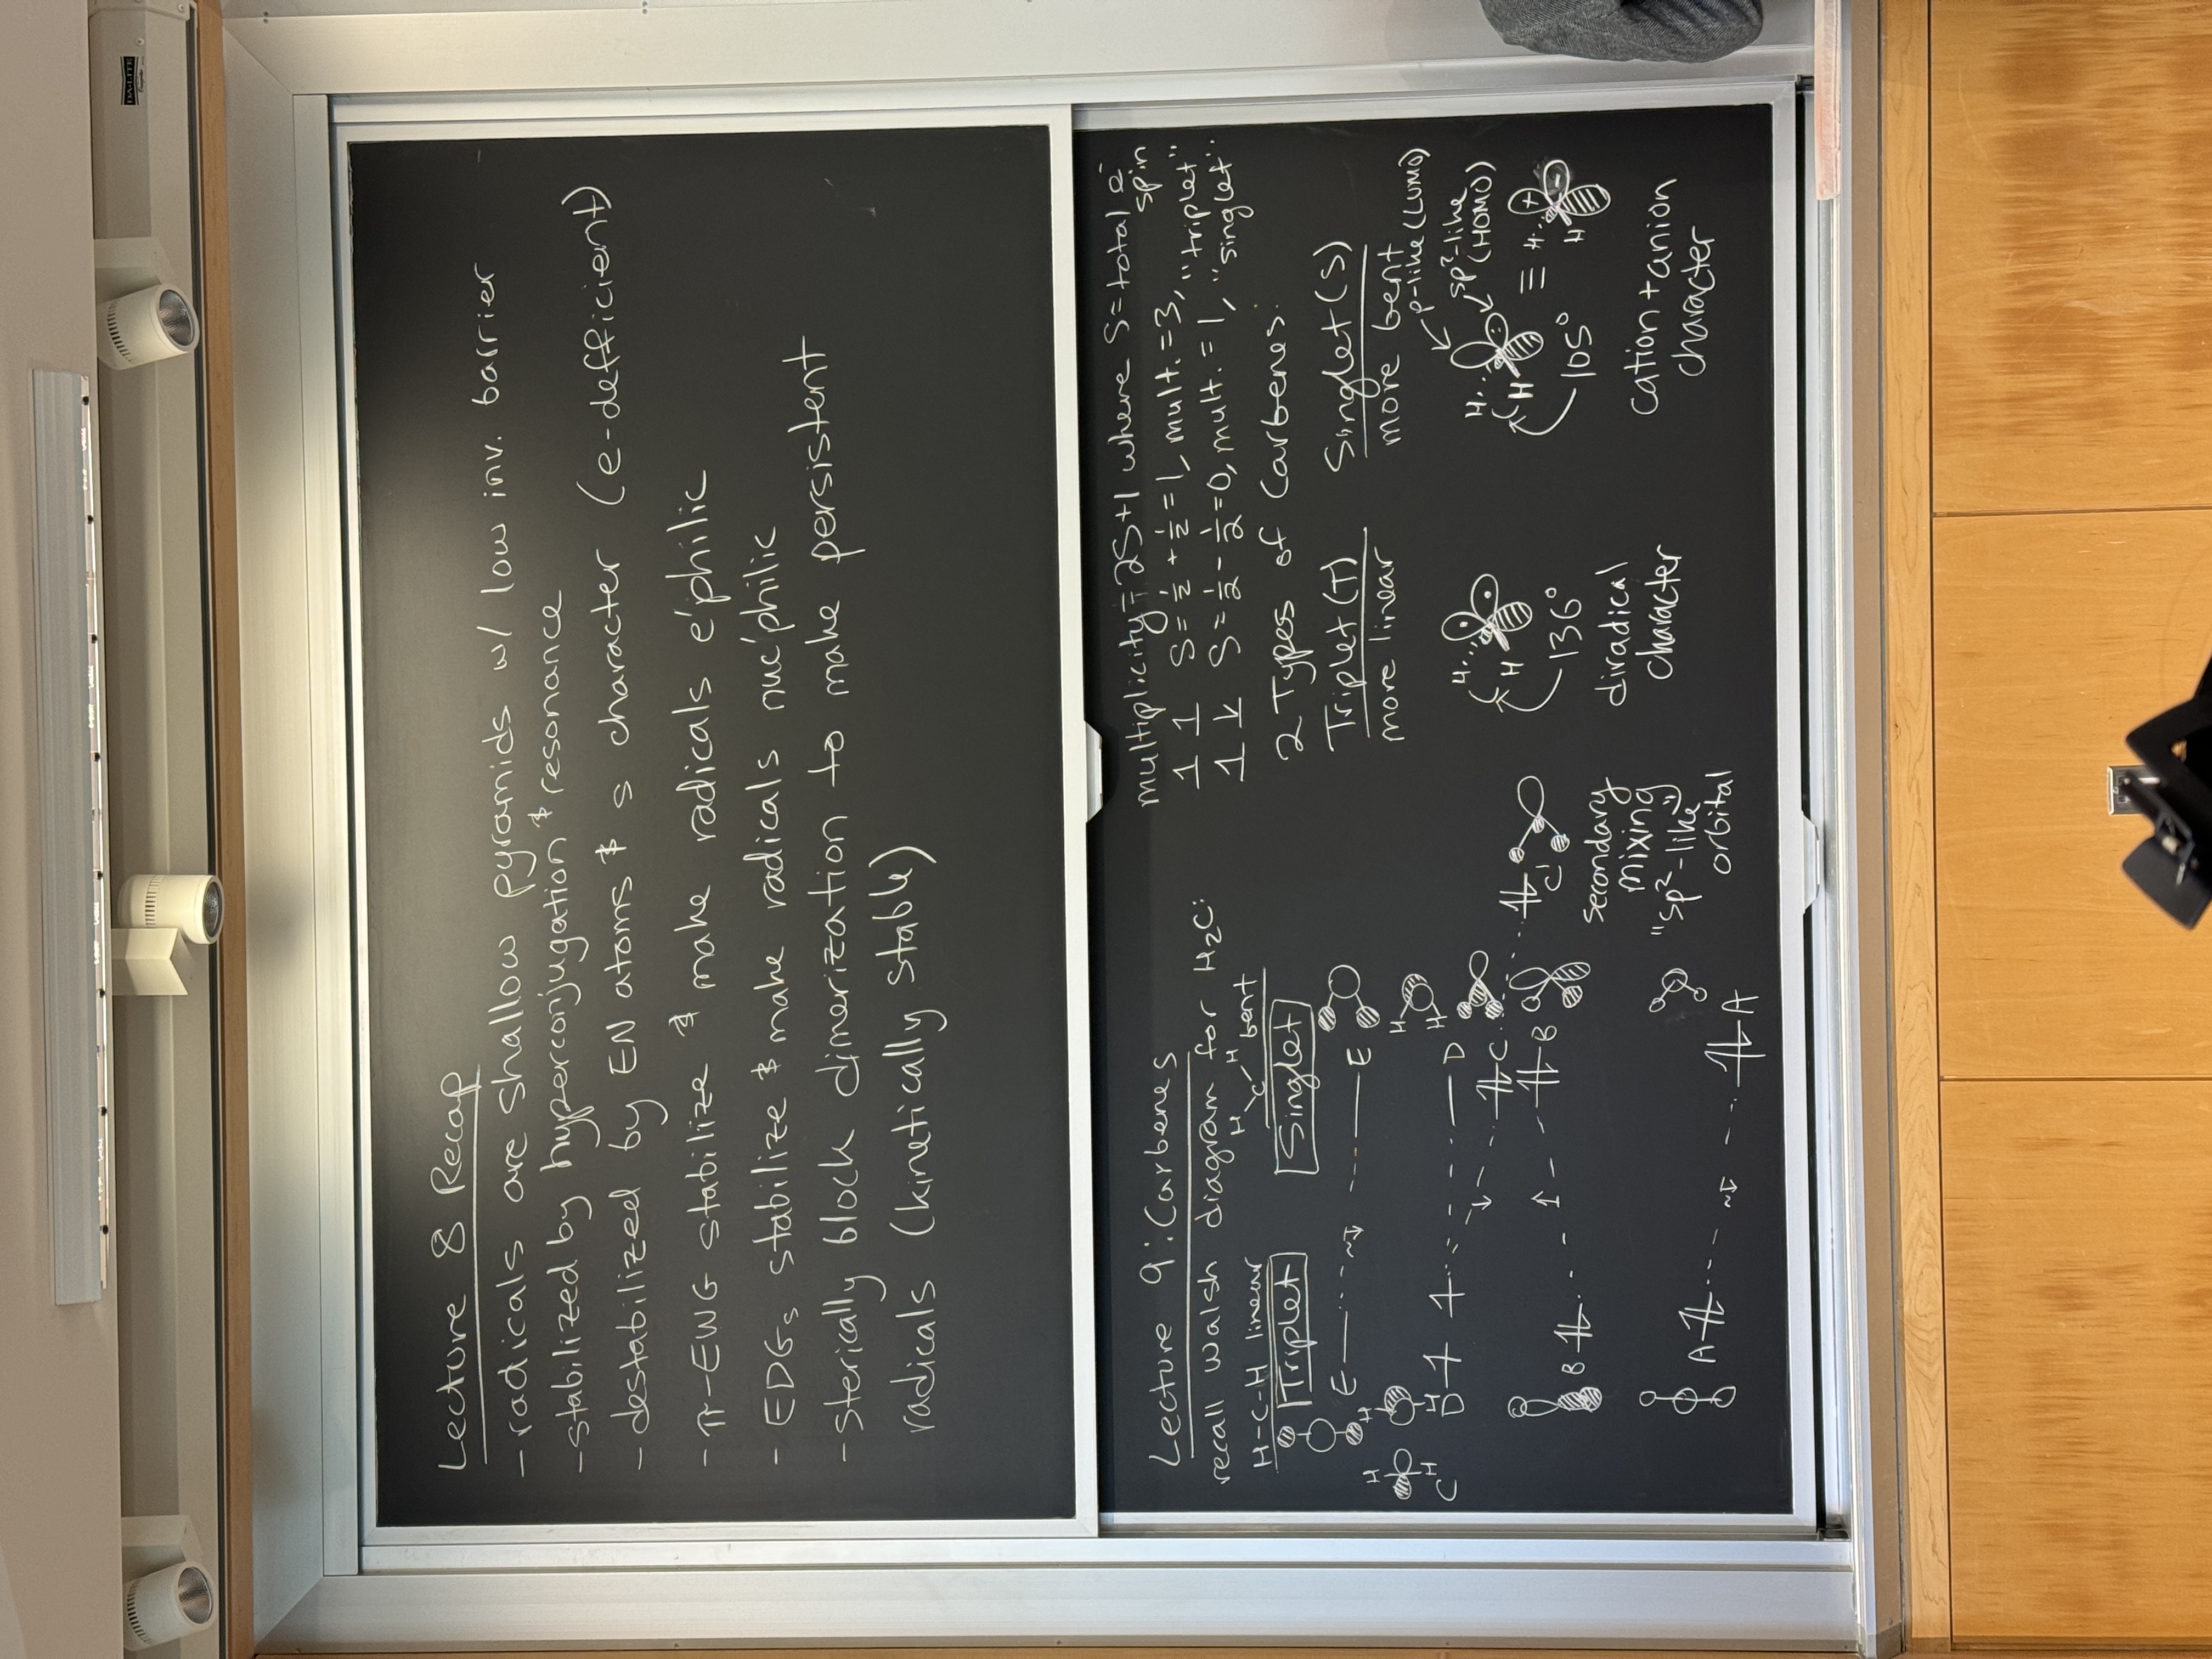 DA-LITE
Lecture 8 Recap
- radicals are shallow pyramids w/ low inv. barrier
- stabilized by hyperconjugation & resonance
- destabilized by EN atoms & s character (e-defficient)
- π-EWG stabilize & make radicals e'philic
- EDGs stabilize & make radicals nuc'philic
- sterically block dimerization to make persistent
radicals (kinetically stable)
Lecture 9: Carbenes
recall Walsh diagram for H₂C:
H-C-H linear
H C H bent
Triplet
Singlet
E ~↓ E
H H
H H
C D ↿ ↿ D
H
H
↓ ⥮ C
B ⥮ ↑ ⥮ B
⥮ C'
secondary
mixing
"sp²-like"
orbital
A ⥮ ~↓ ⥮ A
multiplicity = 2S+1 where S = total e⁻
spin
↿ ↿ S = 1/2 + 1/2 = 1, mult. = 3, "triplet"
↿ ⇂ S = 1/2 - 1/2 = 0, mult. = 1, "singlet"
2 Types of Carbenes:
Triplet (T)
more linear
H
H
136°
diradical
character
Singlet (S)
more bent
p-like (LUMO)
sp²-like
(HOMO)
H
H
105°
≡ H
H
+
-
cation + anion
character